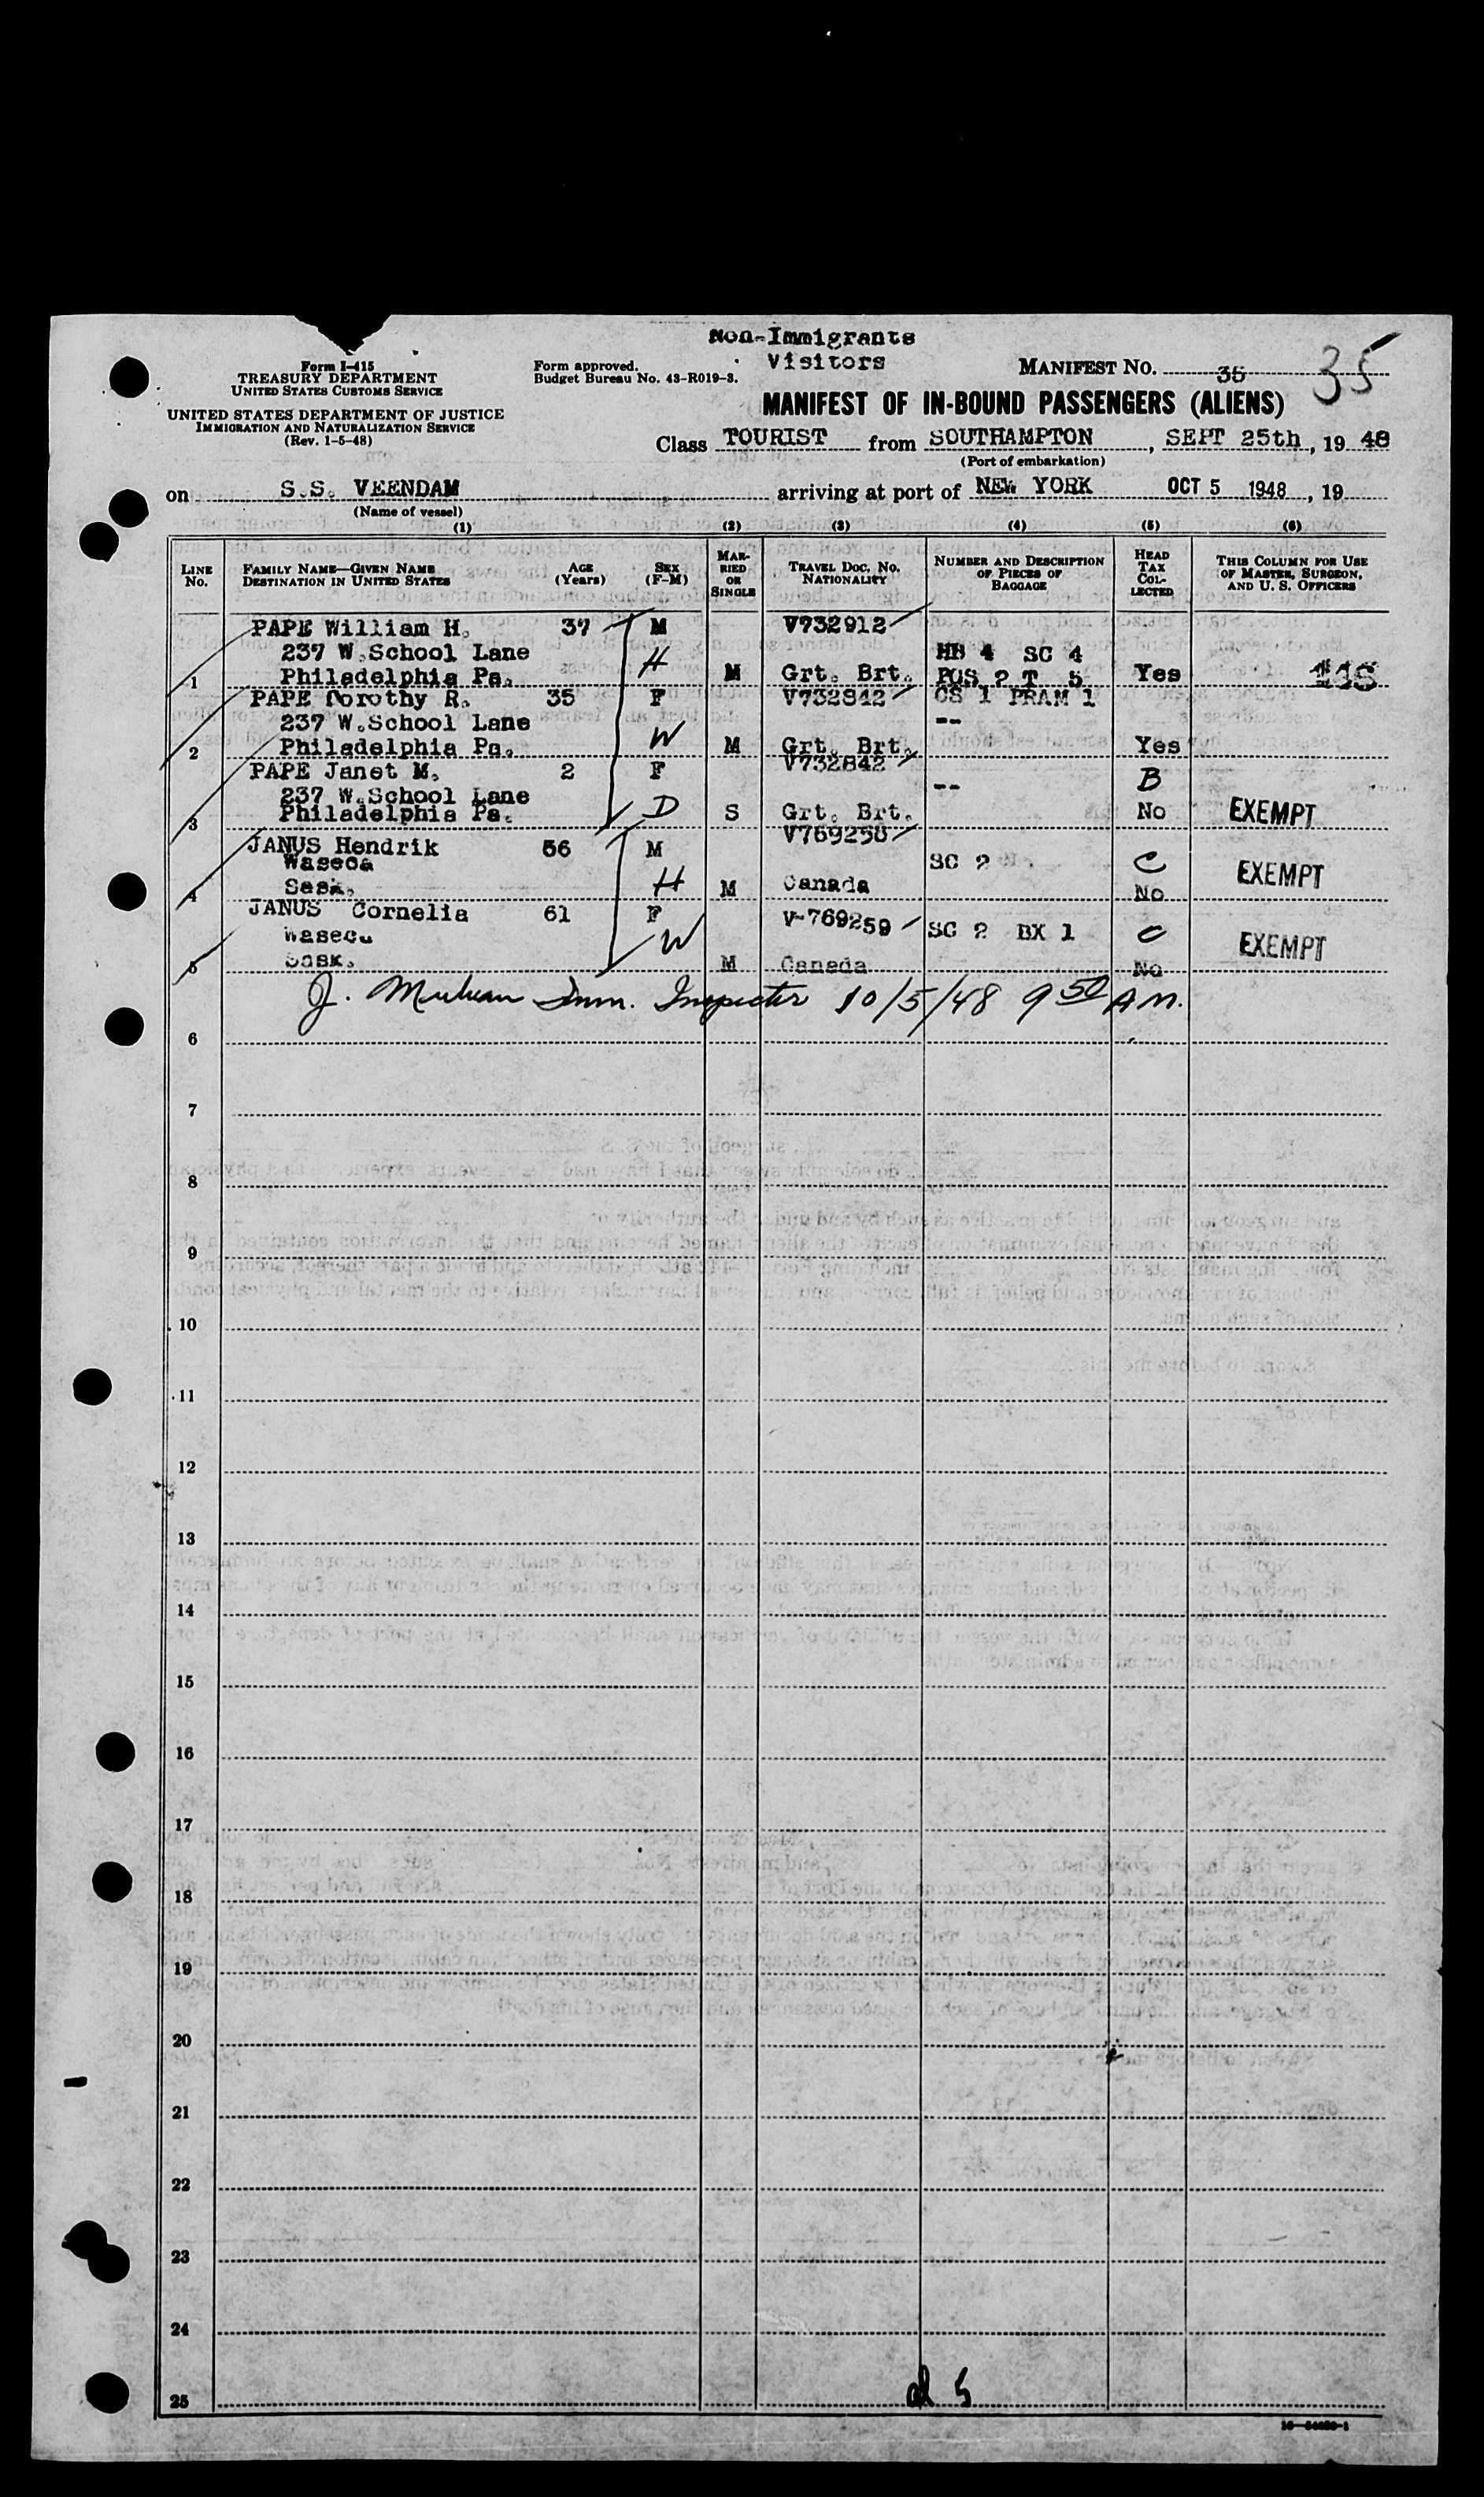 Non-Immigrants
Visitors
Form I-415
TREASURY DEPARTMENT
UNITED STATES CUSTOMS SERVICE
Form approved.
Budget Bureau No. 43-R019-3.
MANIFEST NO. 35 35
UNITED STATES DEPARTMENT OF JUSTICE
IMMIGRATION AND NATURALIZATION SERVICE
(Rev. 1-5-48)
MANIFEST OF IN-BOUND PASSENGERS (ALIENS)
Class TOURIST from SOUTHAMPTON, SEPT 25th, 19 48
(Port of embarkation)
on S.S. VEENDAM arriving at port of NEW YORK OCT 5 1948, 19
(Name of vessel)
(1) (2) (3) (4) (5) (6)
LINE No.
FAMILY NAME—GIVEN NAME
DESTINATION IN UNITED STATES
AGE (Years)
SEX (F-M)
MARRIED OR SINGLE
TRAVEL DOC. NO.
NATIONALITY
NUMBER AND DESCRIPTION OF PIECES OF BAGGAGE
HEAD TAX COLLECTED
THIS COLUMN FOR USE OF MASTER, SURGEON, AND U. S. OFFICERS
PAPE William H. 37 M V732912
237 W.School Lane H HB 4 SC 4
1 Philadelphia Pa. M Grt. Brt. PGS 2 T 5 Yes
PAPE Dorothy R. 35 F V732842 CS 1 PRAM 1
237 W.School Lane W --
2 Philadelphia Pa. M Grt. Brt. Yes
PAPE Janet M. 2 F V732842 B
237 W.School Lane D --
3 Philadelphia Pa. S Grt. Brt. No EXEMPT
JANUS Hendrik 56 M V769258
Waseca H SC 2 C
4 Sask. M Canada No EXEMPT
JANUS Cornelia 61 F V-769259 SC 2 BX 1 C
Waseca W EXEMPT
5 Sask. M Canada No
J. Imm. Inspector 10/5/48 9 50 A M.
6
7
8
9
10
11
12
13
14
15
16
17
18
19
20
21
22
23
24
25